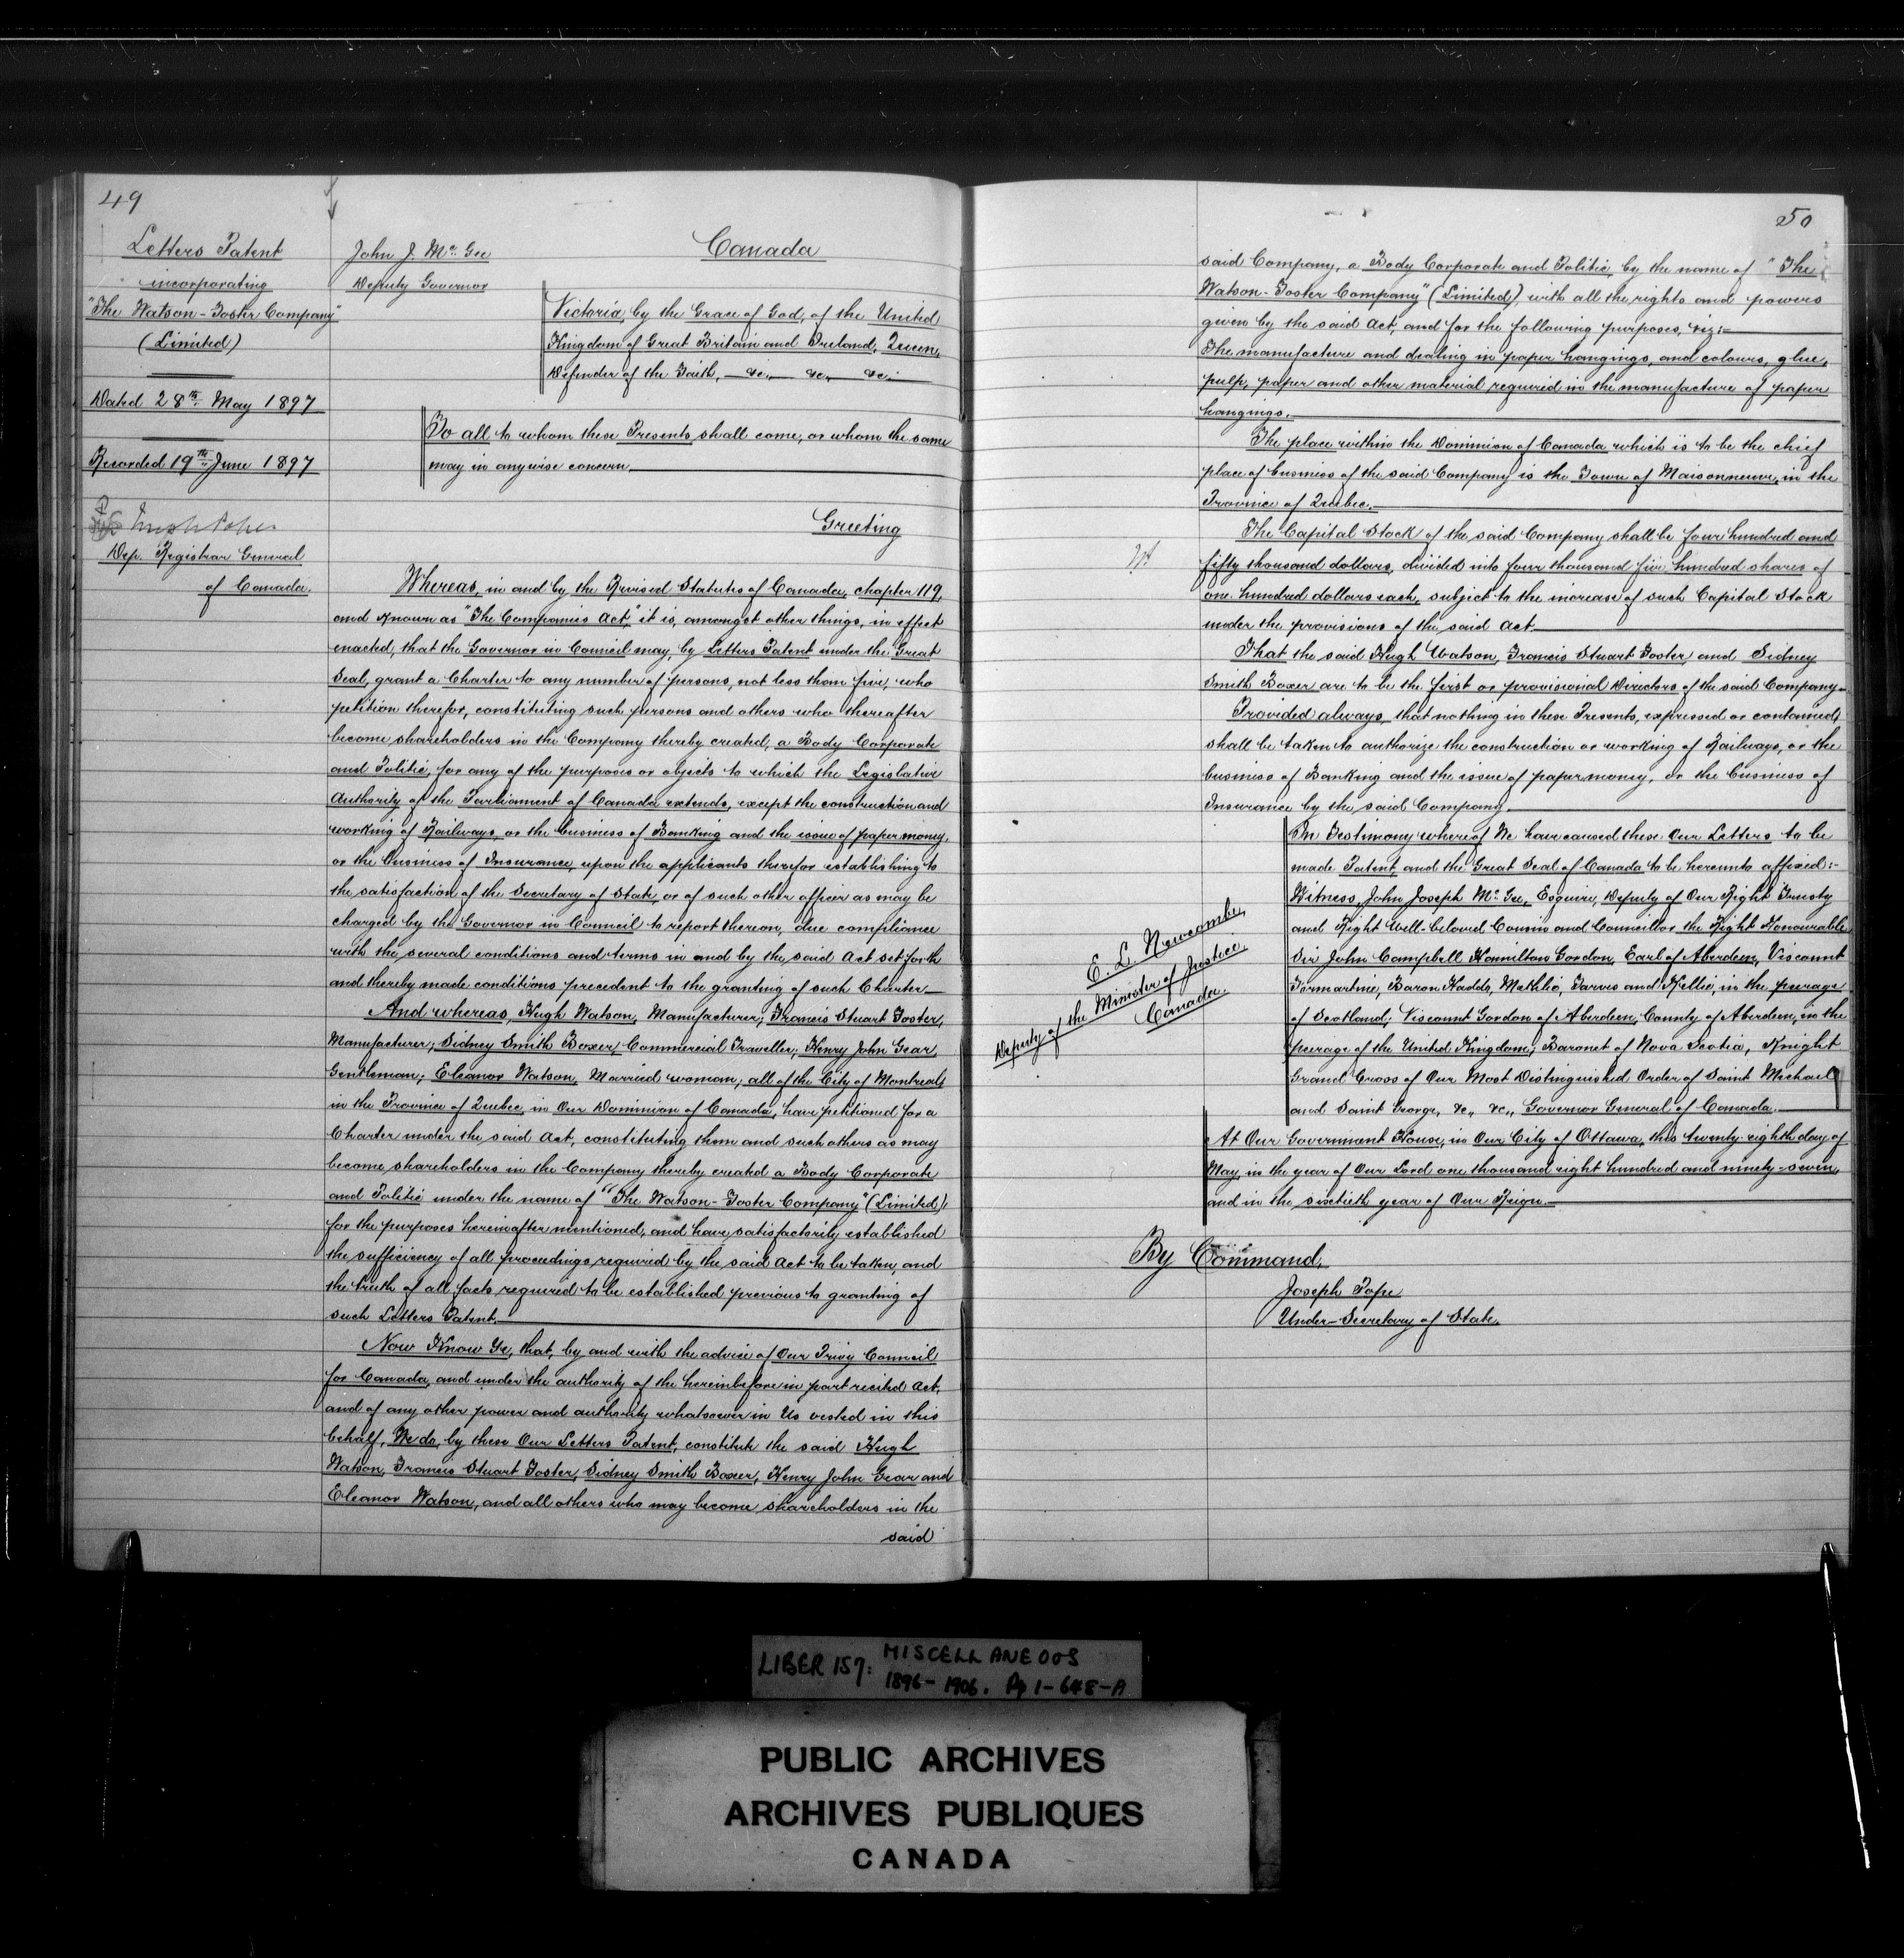 49
Letters Patent
incorporating
"The Watson-Foster Company"
(Limited)
Dated 28th May 1897
Recorded 19th June 1897
Joseph Pope
Dep. Registrar General
of Canada.
John J. McGee
Deputy Governor
Canada
Victoria, by the Grace of God, of the United
Kingdom of Great Britain and Ireland, Queen,
Defender of the Faith, &c., &c., &c.
To all to whom these Presents shall come, or whom the same
may in anywise concern,
Greeting
Whereas, in and by the Revised Statutes of Canada, chapter 119,
and known as "The Companies Act," it is, amongst other things, in effect
enacted, that the Governor in Council may, by Letters Patent under the Great
Seal, grant a Charter to any number of persons, not less than five, who
petition therefor, constituting such persons and others who thereafter
become shareholders in the Company thereby created, a Body Corporate
and Politic, for any of the purposes or objects to which the Legislative
Authority of the Parliament of Canada extends, except the construction and
working of Railways, or the business of Banking and the issue of paper money,
or the Business of Insurance, upon the applicants therefor establishing to
the satisfaction of the Secretary of State, or of such other officer as may be
charged by the Governor in Council to report thereon, due compliance
with the several conditions and terms in and by the said Act set forth
and thereby made conditions precedent to the granting of such Charter
And whereas, Hugh Watson, Manufacturer; Francis Stuart Foster,
Manufacturer; Sidney Smith Boxer, Commercial Traveller; Henry John Gear,
Gentleman; Eleanor Watson, Married woman; all of the City of Montreal,
in the Province of Quebec, in Our Dominion of Canada, have petitioned for a
Charter under the said Act, constituting them and such others as may
become shareholders in the Company thereby created a Body Corporate
and Politic under the name of "The Watson-Foster Company" (Limited),
for the purposes hereinafter mentioned, and have satisfactorily established
the sufficiency of all proceedings required by the said Act to be taken, and
the truth of all facts required to be established previous to granting of
such Letters Patent.
Now Know Ye, that, by and with the advice of Our Privy Council
for Canada, and under the authority of the hereinbefore in part recited Act,
and of any other power and authority whatsoever in Us vested in this
behalf, We do, by these Our Letters Patent, constitute the said Hugh
Watson, Francis Stuart Foster, Sidney Smith Boxer, Henry John Gear and
Eleanor Watson, and all others who may become shareholders in the
said
50
said Company, a Body Corporate and Politic, by the name of "The
Watson-Foster Company" (Limited), with all the rights and powers
given by the said Act, and for the following purposes, viz:-
The manufacture and dealing in paper hangings, and colours, glue,
pulp, paper and other material required in the manufacture of paper
hangings.
The place within the Dominion of Canada which is to be the chief
place of business of the said Company is the Town of Maisonneuve, in the
Province of Quebec.
The Capital Stock of the said Company shall be four hundred and
fifty thousand dollars, divided into four thousand five hundred shares of
one hundred dollars each, subject to the increase of such Capital Stock
under the provisions of the said Act.
That the said Hugh Watson, Francis Stuart Foster, and Sidney
Smith Boxer are to be the first or provisional Directors of the said Company.
Provided always, that nothing in these Presents, expressed or contained,
shall be taken to authorize the construction or working of Railways, or the
business of Banking and the issue of paper money, or the business of
Insurance by the said Company.
In Testimony whereof We have caused these Our Letters to be
made Patent, and the Great Seal of Canada to be hereunto affixed:-
Witness, John Joseph McGee, Esquire, Deputy of Our Right Trusty
and Right Well-beloved Cousin and Councillor the Right Honourable
Sir John Campbell Hamilton Gordon, Earl of Aberdeen, Viscount
Formartine, Baron Haddo, Methlic, Tarves and Kellie, in the peerage
of Scotland; Viscount Gordon of Aberdeen, County of Aberdeen, in the
peerage of the United Kingdom; Baronet of Nova Scotia, Knight
Grand Cross of Our Most Distinguished Order of Saint Michael
and Saint George, &c., &c., Governor General of Canada.
At Our Government House, in Our City of Ottawa, this twenty-eighth day of
May, in the year of Our Lord one thousand eight hundred and ninety-seven,
and in the sixtieth year of Our Reign.
E. L. Newcombe,
Deputy of the Minister of Justice.
Canada.
By Command,
Joseph Pope
Under-Secretary of State.
LIBER 157: MISCELLANEOUS
1896-1906. Pp 1-648-A
PUBLIC ARCHIVES
ARCHIVES PUBLIQUES
CANADA